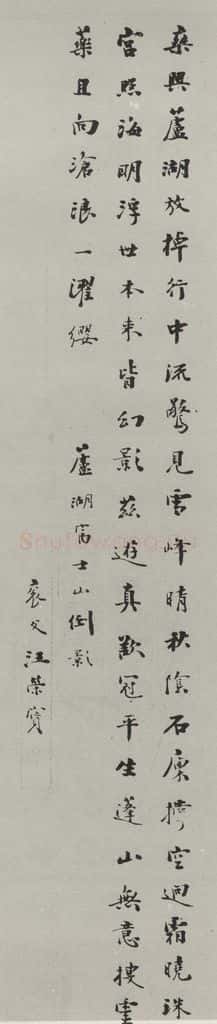 乘興蘆湖放棹行中流驚見雪峰晴秋陰石廩撐空迥霜曉珠
宮照海明浮世本來皆幻影茲遊真歎冠平生蓬山無意搜靈
藥且向滄浪一濯纓
蘆湖富士山倒影
袞父汪榮寶